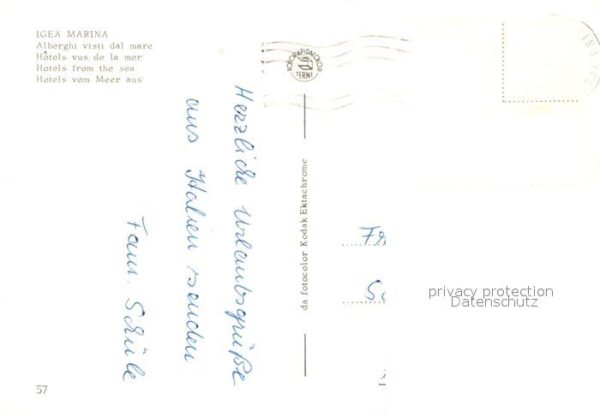 IGEA MARINA
Alberghi visti dal mare
Hôtels vus de la mer
Hotels from the sea
Hotels vom Meer aus
Herzliche Urlaubsgrüße
aus Italien senden
Fam. Schüle
da fotocolor Kodak Ektachrome
privacy protection
Datenschutz
57